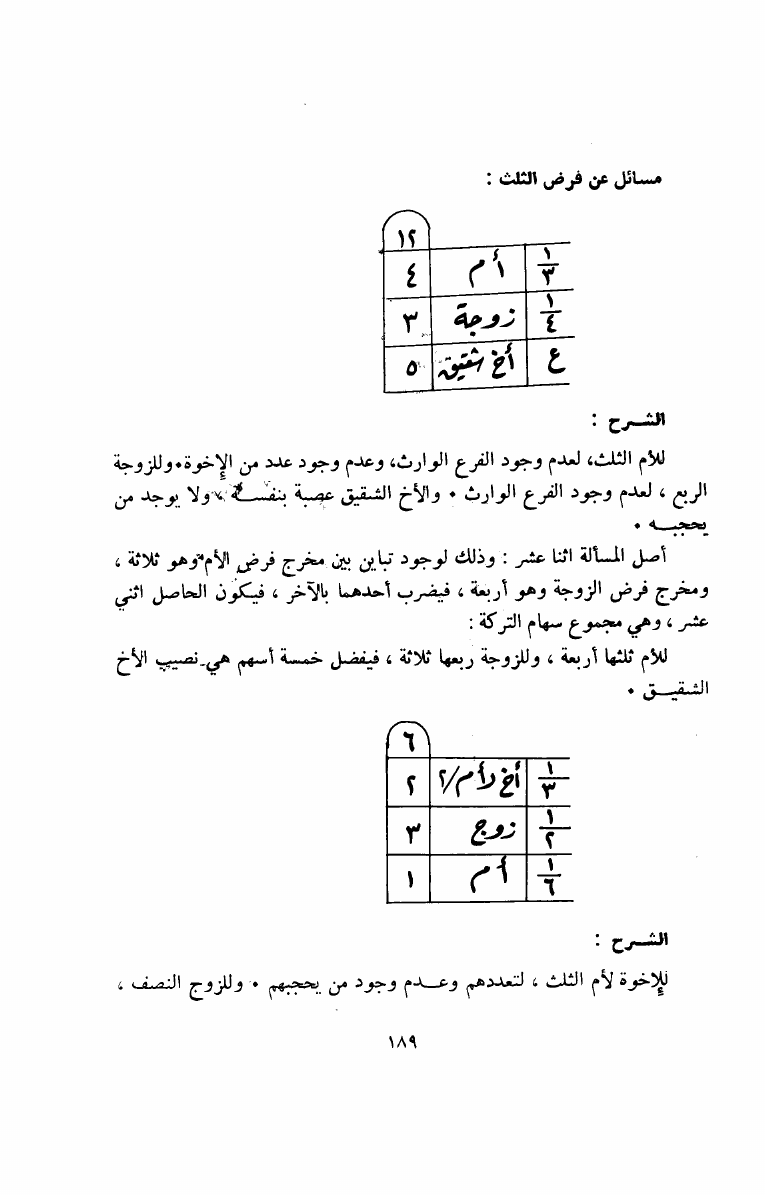 مسائل عن فرض الثلث :
١٢
١/٣ أم ٤
١/٤ زوجة ٣
ع أخ شقيق ٥
الشـرح :
للأم الثلث، لعدم وجود الفرع الوارث، وعدم وجود عدد من الإخوة٠ وللزوجة
الربع ، لعدم وجود الفرع الوارث ٠ والأخ الشقيق عصبة بنفسـه ، ولا يوجد من
يحجبـه ٠
أصل المسألة اثنا عشر : وذلك لوجود تباين بين مخرج فرض الأم وهو ثلاثة ،
ومخرج فرض الزوجة وهو أربعة ، فيضرب أحدهما بالآخر ، فيكون الحاصل اثني
عشر ، وهي مجموع سهام التركة :
للأم ثلثها أربعة ، وللزوجة ربعها ثلاثة ، فيفضل خمسة أسهم هي نصيب الأخ
الشقيـق ٠
٦
١/٣ أخ لأم/٢ ٢
١/٢ زوج ٣
١/٦ أم ١
الشـرح :
للإخوة لأم الثلث ، لتعددهم وعـدم وجود من يحجبهم ٠ وللزوج النصف ،
١٨٩